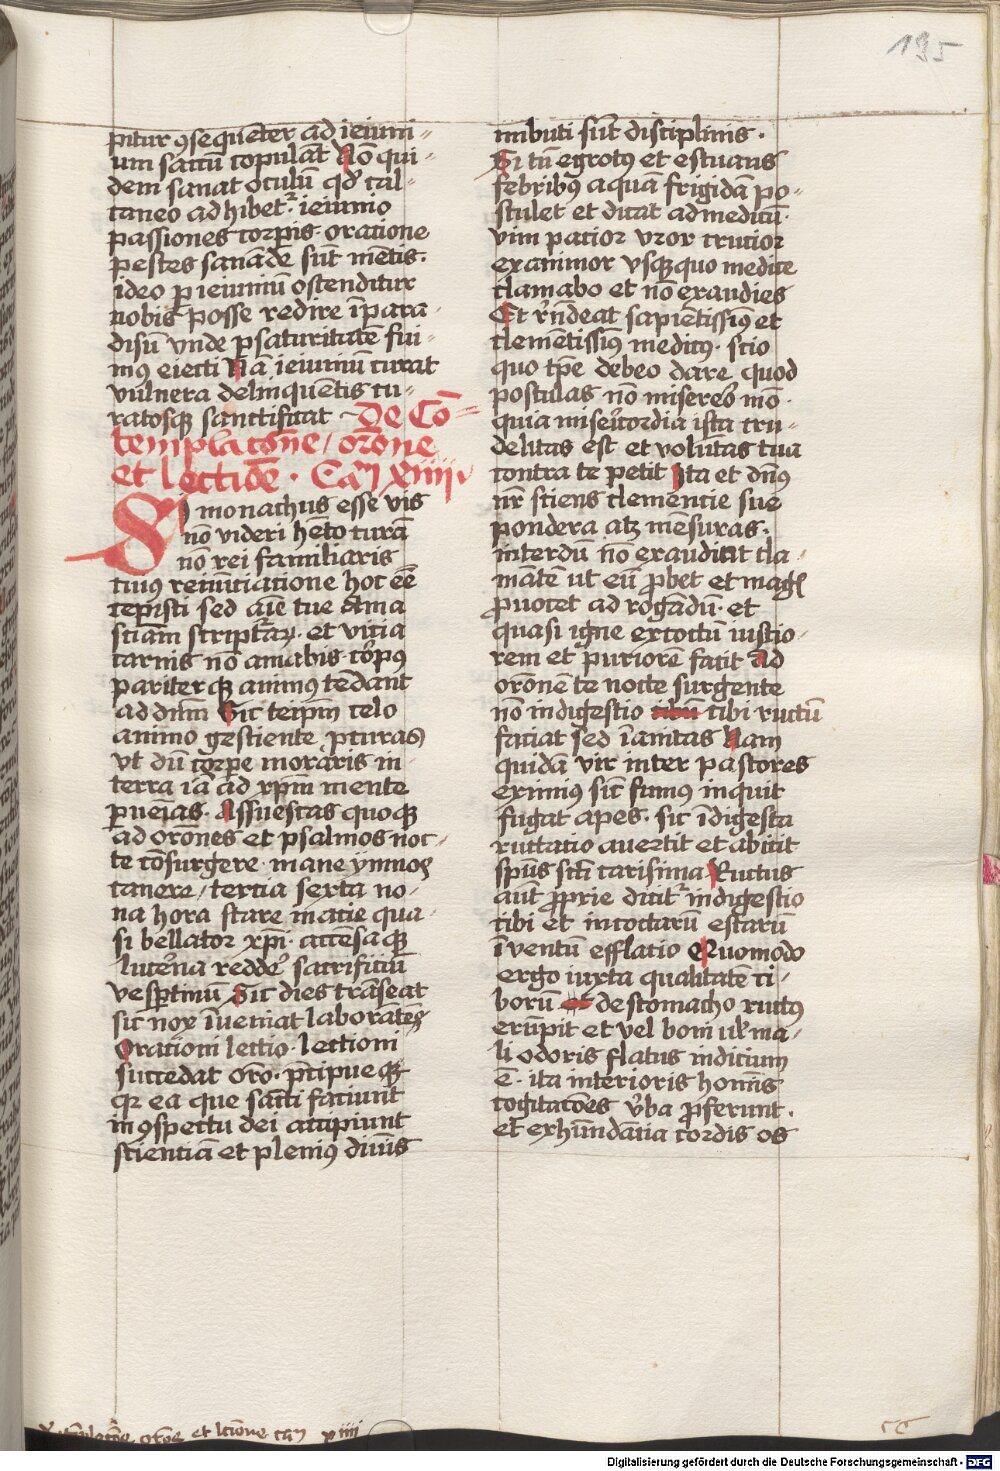 195
pitur ꝯsequēter ad ieiuni-
um sāctū copulāt Nō qui-
dem sanat oculū qd' cal-
caneo adhibet᷑ ieiunio
passiones corꝑis oratione
pestes sanāde sūt mētis.
ideo ꝑ ieiuniū ostenditur
nobis posse redire ī para-
disū vnde ꝑ saturitatē fui-
mꝰ eiecti Nā ieiuniū curat
vulnera delinquētis cu-
ratosqꝫ sanctificat De Cō-
templac̄one / orōne
et lectiōe . Cam̄ xiiii .
Si monachus esse vis
nō videri hēto curā
nō rei familiaris
cuiꝰ renūciatione hoc eē
cepisti sed aīe tue Ama
sciam scriptᷓaꝝ . et vicia
carnis nō amabis corpꝰ
pariter qꝫ animꝰ tēdant
ad dn̄m Sic teip̄m celo
animo gestiente ꝑturas
vt dū corꝑe moraris in
terra iā ad xp̄m mente
ꝑueīas . Assuescas quoqꝫ
ad orōnes et psalmos noc-
te cōsurgere . mane ymnos
canere / tercia sexta no-
na hora stare in acie qua-
si bellator xp̄i . accēsa qꝫ
lucerna redde' sacrificiū
vesꝑtinū Sic dies trāseat
sic nox īueniat laborātes
Orationi lectio . lectioni
succedat oro . p̄cipue qꝫ
qꝛ ea que sācti faciunt
in ꝯspectu dei accipiunt
scientiā et plenius diuīs
imbuti sūt disciplinis .
Si tn̄ egrotꝰ et estuans
febribꝰ aquā frigidā po-
stulet et dicat ad medicū .
vim pacior vror crucior
exanimor vsqꝫ quo medice
clamabo et nō exaudies
Et rn̄deat sapiētissiꝰ et
clemētissiꝰ medicꝰ . scio
quo tp̄e debeo dare quod
postulas nō misereor mo .
quia misericordia ista cru-
delitas est et volūtas tua
contra te petit Ita et dn̄s
nr̄ sciens clemencie sue
pondera atqꝫ mēsuras .
interdū nō exaudiat cla-
mātē ut eū ꝓbet et magꝭ
ꝓuocet ad rogādū . et
quasi igne excoctū iustio-
rem et puriorē facit Ad
orōnem te nocte surgente
nō indigestio cibi ructū
faciat sed īanitas Nam
quidā vir inter pastores
eximius sicut fumus inquit
fugat apes . sic īdigesta
ructatio auertit et abicit
spūs scī carisma Ructus
aut ꝓprie dicit᷑ indigestio
cibi et incoctarū escarū
ī ventū efflatio Quomodo
ergo iuxta qualitatē ci-
borū de stomacho ructꝰ
erūpit et vel boni ul' ma-
li odoris flatus indicium
ē . ita interioris hom̄s
cogitacōes v̄ba ꝓferunt .
et ex hūndācia cordis os
orōne et lcīone cam xiiii